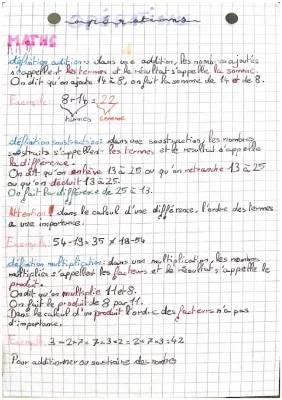 opérations
MATHS
définition addition : dans une addition, les nombres ajoutés
s'appellent les termes et le résultat s'appelle la somme.
On dit qu'on ajoute 14 à 8, on fait la somme de 14 et de 8.
Exemple : 8+14=22
termes somme
définition soustraction : dans une soustraction, les nombres
soustraits s'appellent les termes et le résultat s'appelle
la différence.
On dit qu'on enlève 13 à 25 ou qu'on retranche 13 à 25
ou qu'on déduit 13 à 25.
On fait la différence de 25 à 13.
Attention ! dans le calcul d'une différence, l'ordre des termes
a une importance.
Exemple : 54-19=35 ≠ 19-54
définition multiplication : dans une multiplication, les nombres
multipliés s'appellent les facteurs et le résultat s'appelle le
produit.
On dit qu'on multiplie 11 et 8.
On fait le produit de 8 par 11.
Dans le calcul d'un produit l'ordre des facteurs n'a pas
d'importance.
Exemple : 3×2×7 = 7×3×2 = 2×7×3 = 42
Pour additionner ou soustraire des nombres